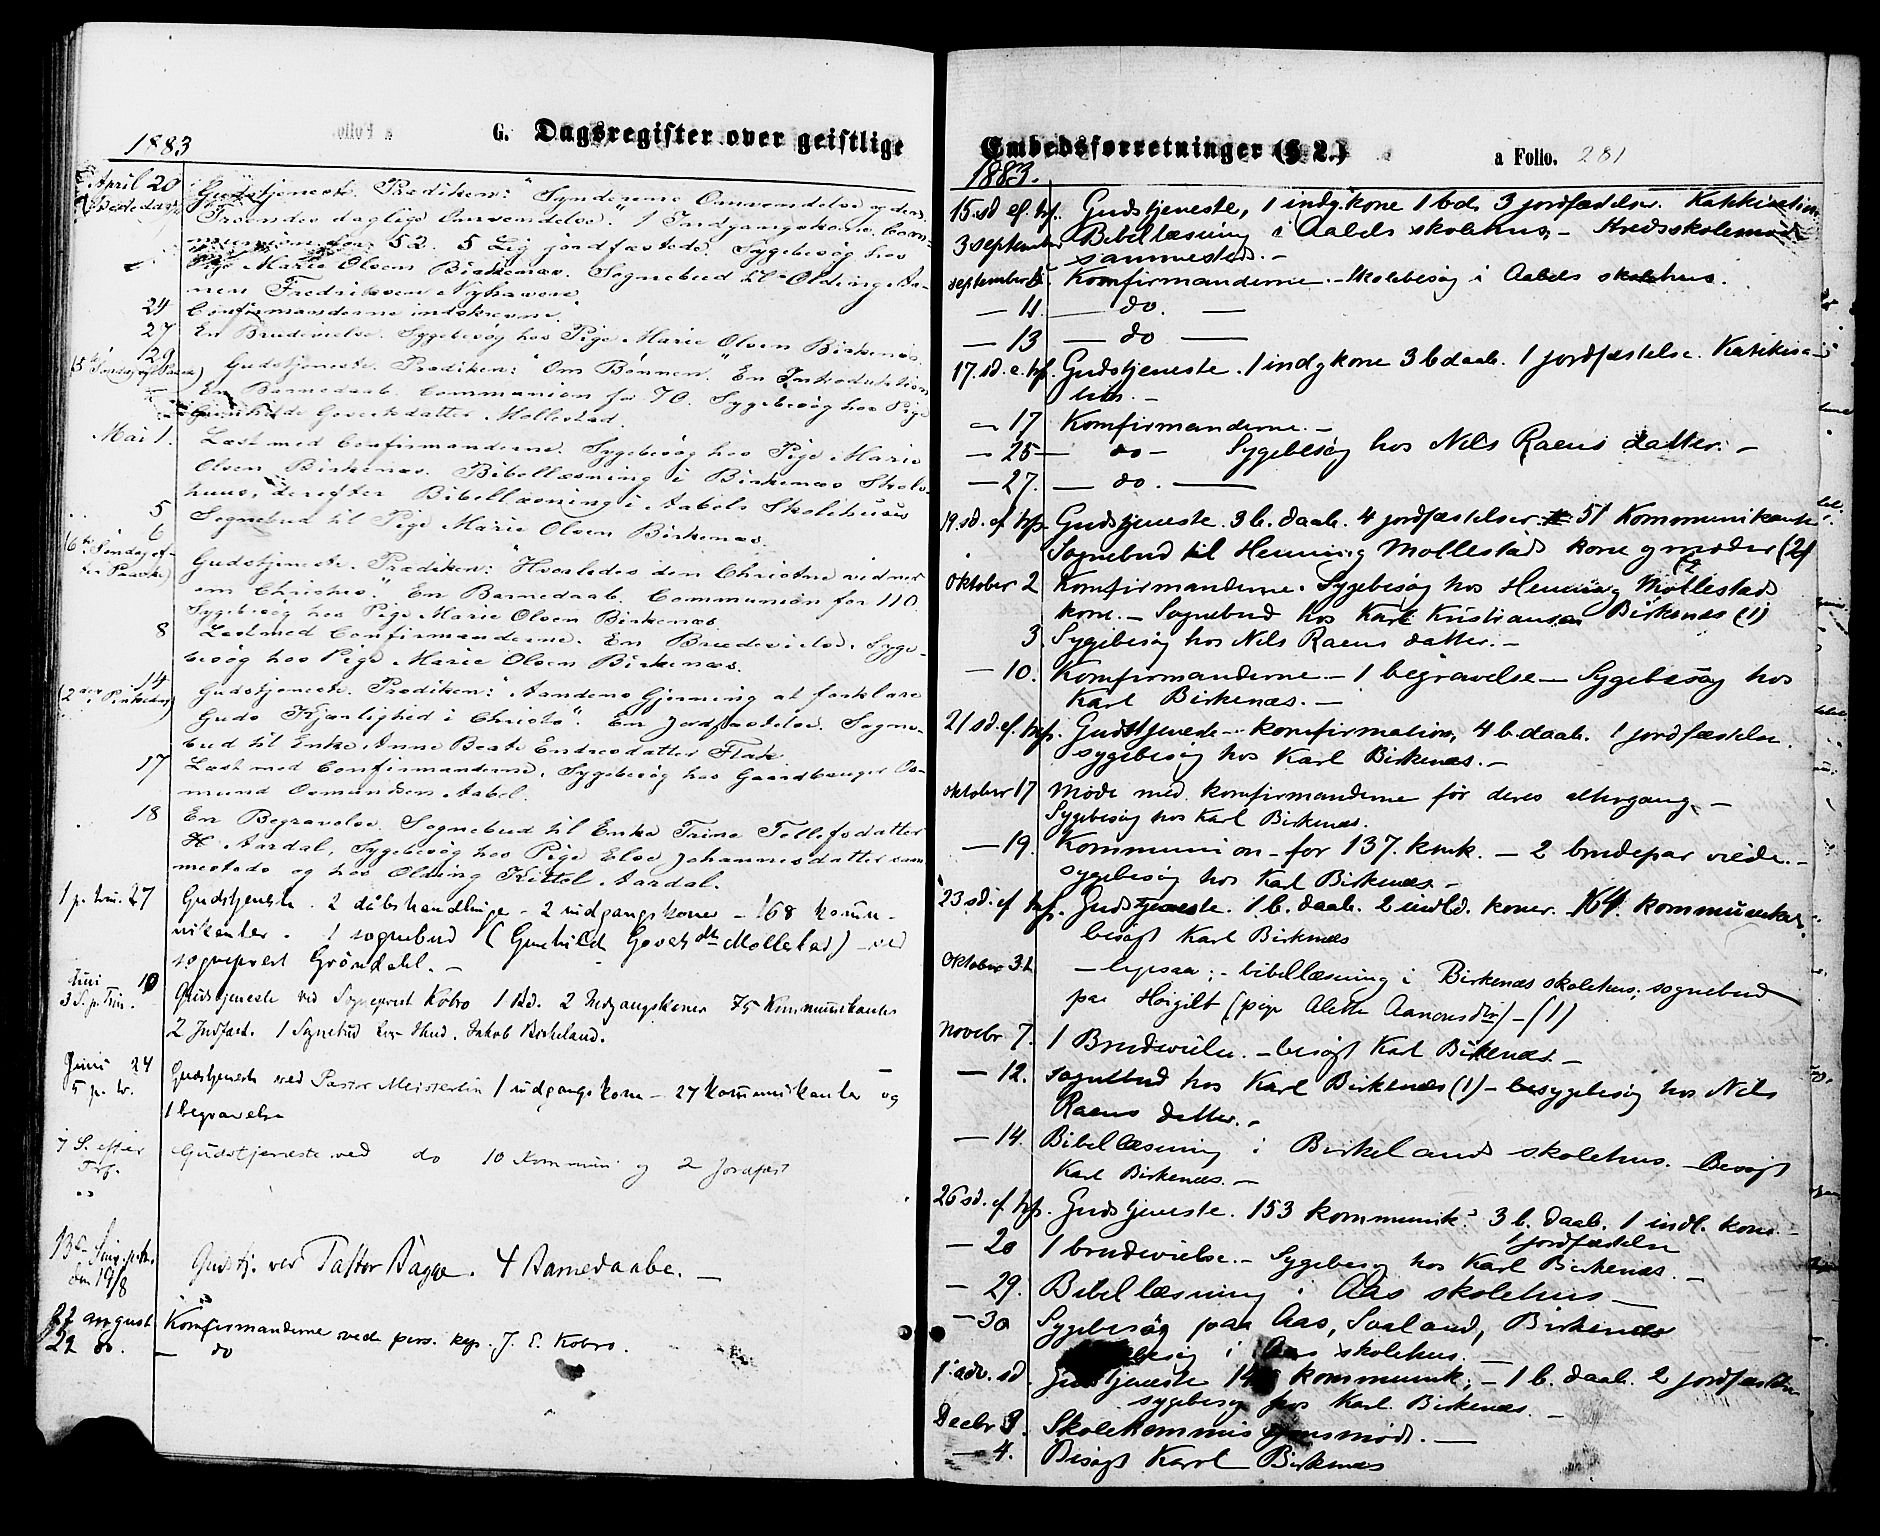 G. Dagsregister over geistlige
1883
April 20 Gudstjeneste. Prædiken: "Synderens Omvendelse og den
(Bededag) Troendes daglige Omvendelse". 1 Indgangskone. Com-
munion for 52. 5 Lig jordfæstede. Sygebesøg hos
Pige Marie Olsen Birkenæs. Sognebud til Olding Aa-
nen Fredriksen Nyhaven.
24 Confirmanderne indskrevne.
27 En Brudevielse. Sygebesøg hos Pige Marie Olsen Birkenæs.
29 Gudstjeneste. Prædiken: "Om Bønnen". En Introduktion
(5te Søndag ef. Paaske) En Barnedaab. Communion for 70. Sygebesøg hos Pige
Gunhilde Govertsdatter Mollestad.
Mai 1. Læst med Confirmanderne. Sygebesøg hos Pige Marie
Olsen Birkenæs. Bibellæsning i Birkenæs Skole-
huus, derefter Bibellæsning i Aabels Skolehuus
5 Sognebud til Pige Marie Olsen Birkenæs.
6
(6te Søndag ef- Gudstjeneste. Prædiken: "Hvorledes den Christne vidner
ter Paaske) om Christus". En Barnedaab. Communion for 110.
Sygebesøg hos Pige Marie Olsen Birkenæs
8 Læst med Confirmanderne. En Brudevielse. Syge-
besøg hos Pige Marie Olsen Birkenæs.
14 Gudstjeneste. Prædiken: "Aandens Gjerning at forklare
(2den Pintsedag) Guds Kjærlighed i Christo". En Jordfæstelse. Sogne-
bud til Enke Anne Beate Endresdatter Flak.
17 Læst med Confirmanderne. Sygebesøg hos Gaardbruger Os-
mund Osmundsen Aabel.
18 En Begravelse. Sognebud til Enke Trine Tellefsdatter
Aardal, Sygebesøg hos Pige Else Johannesdatter sam-
mesteds og hos Olding Kittel Aardal.
1 p. trin. 27 Gudstjeneste. 2 dåbshandlinger - 2 indgangskoner - 168 kommu-
nikanter. 1 sognebud (Gunhild Goverts dtr Mollestad) - ved
sogneprest Gröndahl. -
Juni 10
3 S. p. Trin. Gudstjeneste ved Sogneprest Kobro 1 Bd. 2 Indgangskoner 75 Kommunikanter
2 Jordfæst. 1 Sognebud Jakob Birkeland.
Juni 24 Gudstjeneste ved Pastor Meissertin 1 indgangskone - 27 kommunikanter og
5 p. tr. 1 begravelse
7 S. efter Gudstjeneste ved do 10 Kommuni og 2 Jordfæst
Trf.
13de Sønd. p. tr. Gudstj. ved Pastor Bagge. 4 Barnedaabe. -
den 19/8
27 august Komfirmanderne ved pers. kap. J. E. Kobro.
29 do. - do
Embedsforretninger (§ 2.)
a Folio. 281
1883.
15. sd ef. trf. Gudstjeneste, 1 indg. kone 1 bd. 3 jordfæstelser. Katekisation
3 september Bibellæsning i Aabels skolehus. - Kredsskolemøde
sammesteds. -
september 6 Komfirmanderne. - Skolebesøg i Aabels skolehus.
- 11 - do. -
- 13 - do -
17. sd. e. trf. Gudstjeneste. 1 indg kone 3 b daab. 1 jordfæstelse. Katikisa-
tion. -
- 17 Komfirmanderne. -
- 25 - do - Sygebesøg hos Nils Raens datter. -
- 27. - do. -
19. sd. ef. trf. Gudstjeneste. 3 b. daab. 4 jordfæstelser. 51 Kommunikanter
Sognebud til Henning Mollestads kone og moder (2)
Oktober 2 Komfirmanderne. Sygebesøg hos Henning Mollestads
kone. - Sognebud hos Karl Kristiansen Birkenæs (1)
3. Sygebesøg hos Nils Raens datter. -
- 10. Komfirmanderne - 1 begravelse - Sygebesøg hos
Karl Birkenæs. -
21 sd. ef. trf. Gudstjeneste - komfirmation, 4 b. daab. 1 jordfæstelse.
sygebesøg hos Karl Birkenæs. -
oktober 17 Møde med komfirmanderne før deres altergang -
Sygebesøg hos Karl Birkenæs.
- 19. Kommunion - for 137. kmk. - 2 brudepar viede. -
sygebesøg hos Karl Birkenæs. -
23 sd. ef trf. Gudstjeneste. 1 b. daab. 2 indld. koner. 164. kommunikanter.
besøgt Karl Birkenæs
Oktober 31. - ligesaa; - bibellæsning i Birkenæs skolehus; sognebud
paa Høigilt (pige Alette Aanons dtr) - (1)
Novebr 7. 1 Brudevielse. - besøgt Karl Birkenæs. -
- 12. sognebud hos Karl Birkenæs (1) - sygebesøg hos Nils
Raens datter. -
- 14. Bibellæsning i Birkelands skolehus. - Besøgt
Karl Birkenæs. -
26 sd. ef. trf. Gudstjeneste. 153 kommunik. 3 b. daab. 1 indl. kone.
1 jordfæstelse
- 20 1 brudevielse. - Sygebesøg hos Karl Birkenæs. -
- 29. Bibellæsning i Aas skolehus -
- 30 Sygebesøg paa Aas, Svaland, Birkenæs
besøg i Aas skolehus. -
1. adv. sd. Gudstjeneste kommunik; - 1 b. daab. 2 jordfæstelser
sygebesøg hos Karl Birkenæs. -
Decbr 3. Skolekommissionsmøde. -
- 4. Besøgt Karl Birkenæs